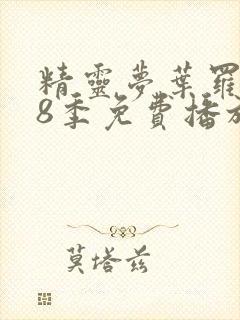 精靈夢葉羅
8季免費播放
莫塔兹